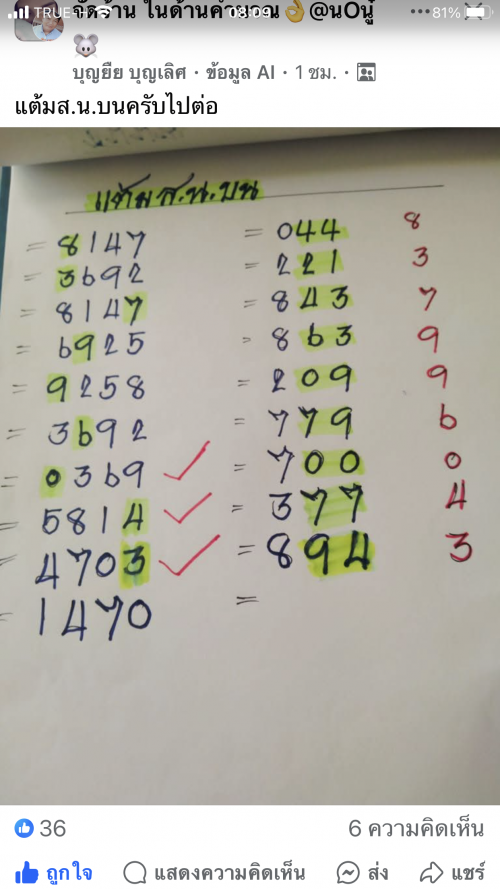 TRUE-H
08:09
81%
จัดจ้าน ในด้านคำนวณ👌 @นOนู๋
🐭
บุญยืย บุญเลิศ · ข้อมูล AI · 1 ชม. ·
แต้มส.น.บนครับไปต่อ
แต้มส.น.บน
= 8147 = 044 8
= 3692 = 221 3
= 8147 = 843 7
= 6925 = 863 9
= 9258 = 209 9
= 3692 = 779 6
= 0369 ✓ = 700 0
= 5814 ✓ = 377 4
= 4703 ✓ = 894 3
= 1470 =
36
6 ความคิดเห็น
ถูกใจ แสดงความคิดเห็น ส่ง แชร์